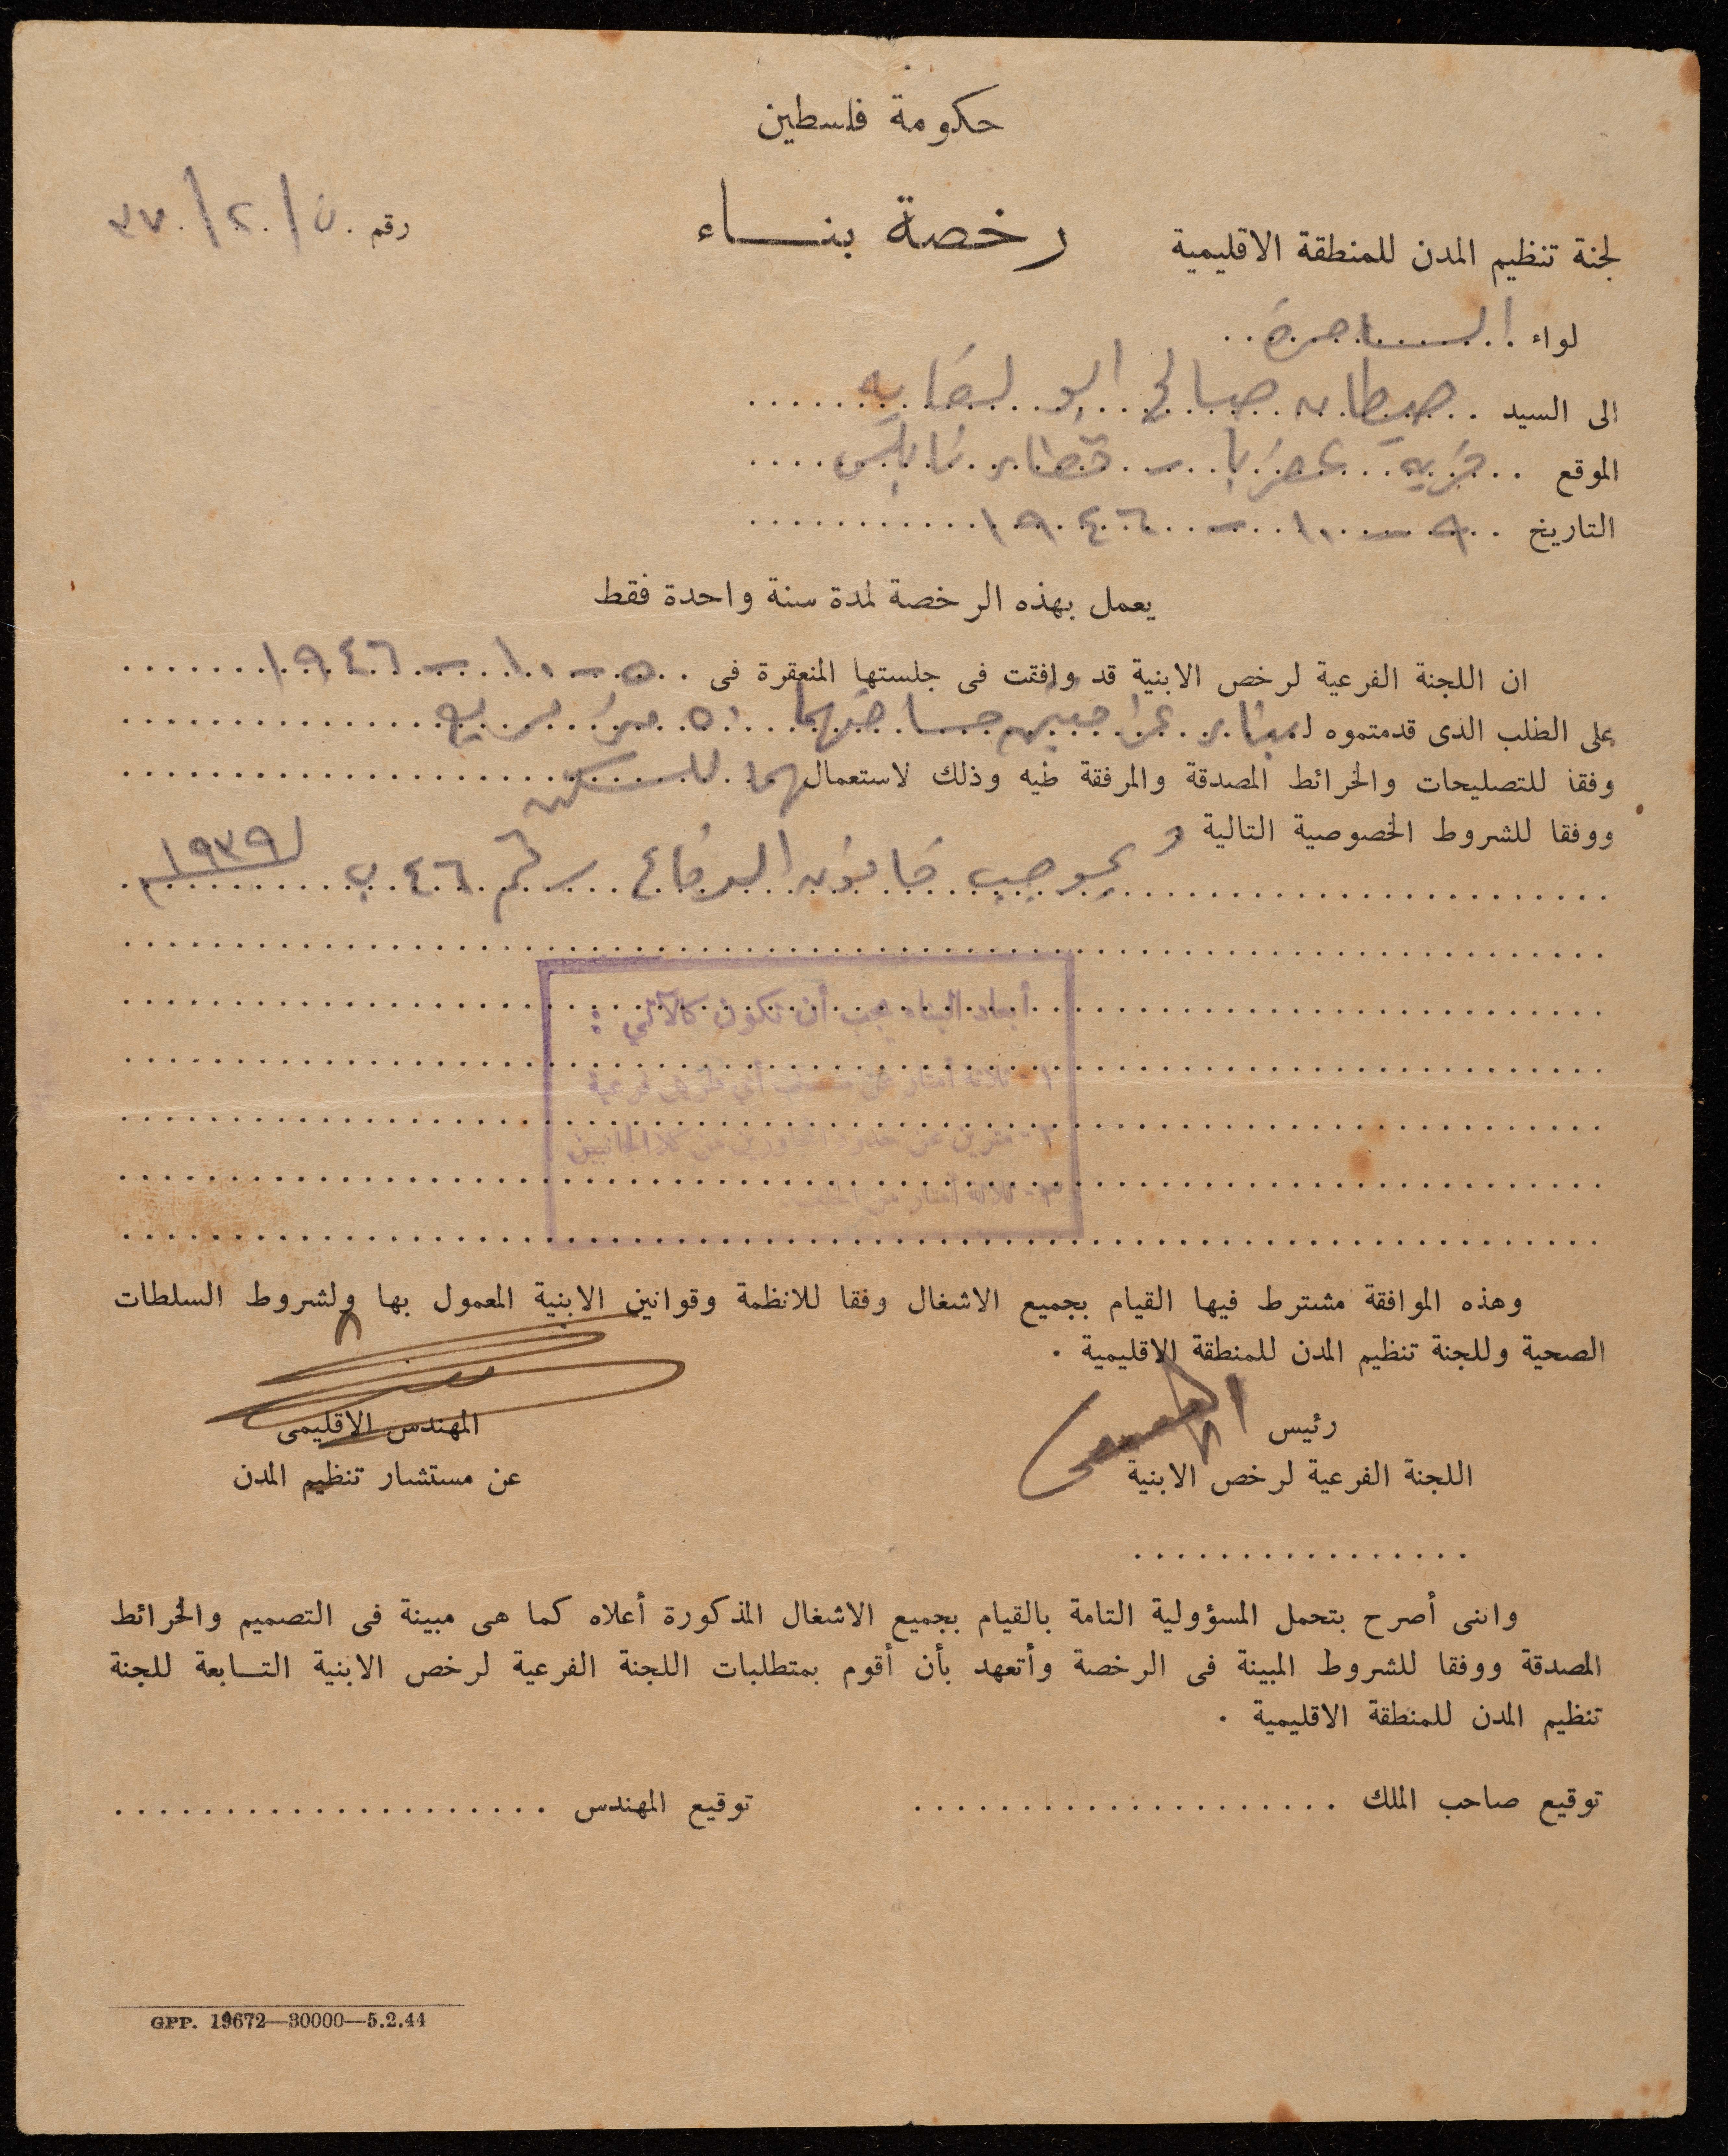 حكومة فلسطين
رخصة بناء
رقم ن/٢/٣٧
لجنة تنظيم المدن للمنطقة الاقليمية
لواء السامرة
الى السيد صالح ابو
الموقع قرية عقربا - قضاء نابلس
التاريخ ٩ - ١٠ - ١٩٤٦
يعمل بهذه الرخصة لمدة سنة واحدة فقط
ان اللجنة الفرعية لرخص الابنية قد وافقت فى جلستها المنعقرة فى ٥ - ١٠ - ١٩٤٦
على الطلب الذى قدمتموه لبناء مساحتهما متر
وفقا للتصليحات والخرائط المصدقة والمرفقة طيه وذلك لاستعمالهما للسكن
ووفقا للشروط الخصوصية التالية و
بموجب قانون الدفاع رقم ٤٦ ب لـ ١٩٣٩
أبعاد البناء يجب أن تكون كالآتي :
١ - ثلاثة أمتار عن منتصف أي طريق فرعية
٢ - مترين عن حدود المجاورين من كلا الجانبين
٣ - ثلاثة أمتار من الخلف
وهذه الموافقة مشترط فيها القيام بجميع الاشغال وفقا للانظمة وقوانين الابنية المعمول بها ولشروط السلطات
الصحية وللجنة تنظيم المدن للمنطقة الاقليمية .
رئيس
اللجنة الفرعية لرخص الابنية
المهندس الاقليمى
عن مستشار تنظيم المدن
واننى أصرح بتحمل المسؤولية التامة بالقيام بجميع الاشغال المذكورة أعلاه كما هى مبينة فى التصميم والخرائط
المصدقة ووفقا للشروط المبينة فى الرخصة وأتعهد بأن أقوم بمتطلبات اللجنة الفرعية لرخص الابنية التابعة للجنة
تنظيم المدن للمنطقة الاقليمية .
توقيع صاحب الملك
توقيع المهندس
GPP. 19672—30000—5.2.44